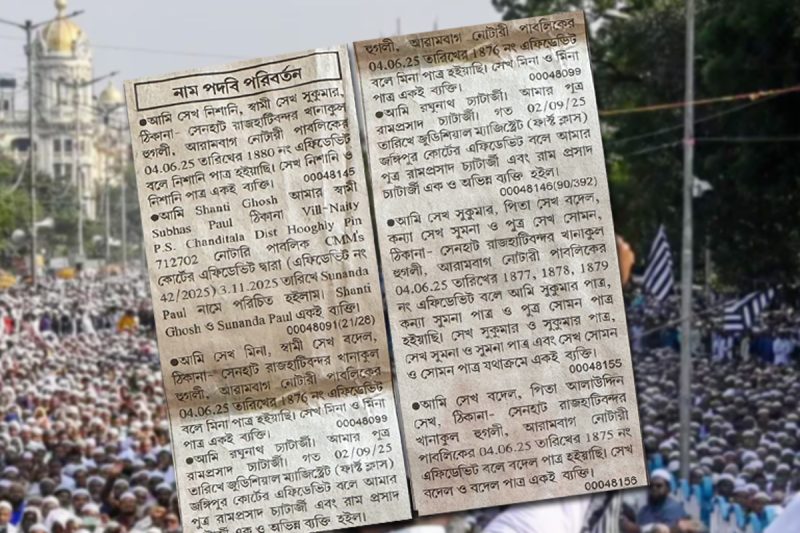 নাম পদবি পরিবর্তন
●আমি সেখ নিশানি, স্বামী সেখ সুকুমার,
ঠিকানা- সেনহাট রাজহাটিবন্দর খানাকুল
হুগলী, আরামবাগ নোটারী পাবলিকের
04.06.25 তারিখের 1880 নং এফিডেভিট
বলে নিশানি পাত্র হইয়াছি। সেখ নিশানি ও
নিশানি পাত্র একই ব্যক্তি।
00048145
●আমি Shanti Ghosh আমার স্বামী
Subhas Paul ঠিকানা Vill-Naity
P.S. Chanditala Dist Hooghly Pin
712702 নোটারি পাবলিক CMM's
কোর্টের এফিডেভিট দ্বারা (এফিডেভিট নং
42/2025) 3.11.2025 তারিখে Sunanda
Paul নামে পরিচিত হইলাম। Shanti
Ghosh ও Sunanda Paul একই ব্যক্তি।
00048091(21/28)
●আমি সেখ মিনা, স্বামী সেখ বদেল,
ঠিকানা- সেনহাট রাজহাটিবন্দর খানাকুল
হুগলী, আরামবাগ নোটারী পাবলিকের
04.06.25 তারিখের 1876 নং এফিডেভিট
বলে মিনা পাত্র হইয়াছি। সেখ মিনা ও মিনা
পাত্র একই ব্যক্তি।
00048099
●আমি রঘুনাথ চ্যাটার্জী। আমার পুত্র
রামপ্রসাদ চ্যাটার্জী। গত 02/09/25
তারিখে জুডিশিয়াল ম্যাজিস্ট্রেট (ফার্স্ট ক্লাস)
জঙ্গিপুর কোর্টের এফিডেভিট বলে আমার
পুত্র রামপ্রসাদ চ্যাটার্জী এবং রাম প্রসাদ
চ্যাটার্জী এক ও অভিন্ন ব্যক্তি হইল।
হুগলী, আরামবাগ নোটারী পাবলিকের
04.06.25 তারিখের 1876 নং এফিডেভিট
বলে মিনা পাত্র হইয়াছি। সেখ মিনা ও মিনা
পাত্র একই ব্যক্তি।
00048099
●আমি রঘুনাথ চ্যাটার্জী। আমার পুত্র
রামপ্রসাদ চ্যাটার্জী। গত 02/09/25
তারিখে জুডিশিয়াল ম্যাজিস্ট্রেট (ফার্স্ট ক্লাস)
জঙ্গিপুর কোর্টের এফিডেভিট বলে আমার
পুত্র রামপ্রসাদ চ্যাটার্জী এবং রাম প্রসাদ
চ্যাটার্জী এক ও অভিন্ন ব্যক্তি হইল।
00048146(90/392)
●আমি সেখ সুকুমার, পিতা সেখ বদেল,
কন্যা সেখ সুমনা ও পুত্র সেখ সোমন,
ঠিকানা- সেনহাট রাজহাটিবন্দর খানাকুল
হুগলী, আরামবাগ নোটারী পাবলিকের
04.06.25 তারিখের 1877, 1878, 1879
নং এফিডেভিট বলে আমি সুকুমার পাত্র,
কন্যা সুমনা পাত্র ও পুত্র সোমন পাত্র
হইয়াছি। সেখ সুকুমার ও সুকুমার পাত্র,
সেখ সুমনা ও সুমনা পাত্র এবং সেখ সোমন
ও সোমন পাত্র যথাক্রমে একই ব্যক্তি।
00048155
●আমি সেখ বদেল, পিতা আলাউদ্দিন
সেখ, ঠিকানা- সেনহাট রাজহাটিবন্দর
খানাকুল হুগলী, আরামবাগ নোটারী
পাবলিকের 04.06.25 তারিখের 1875 নং
এফিডেভিট বলে বদেল পাত্র হইয়াছি। সেখ
বদেল ও বদেল পাত্র একই ব্যক্তি।
00048156